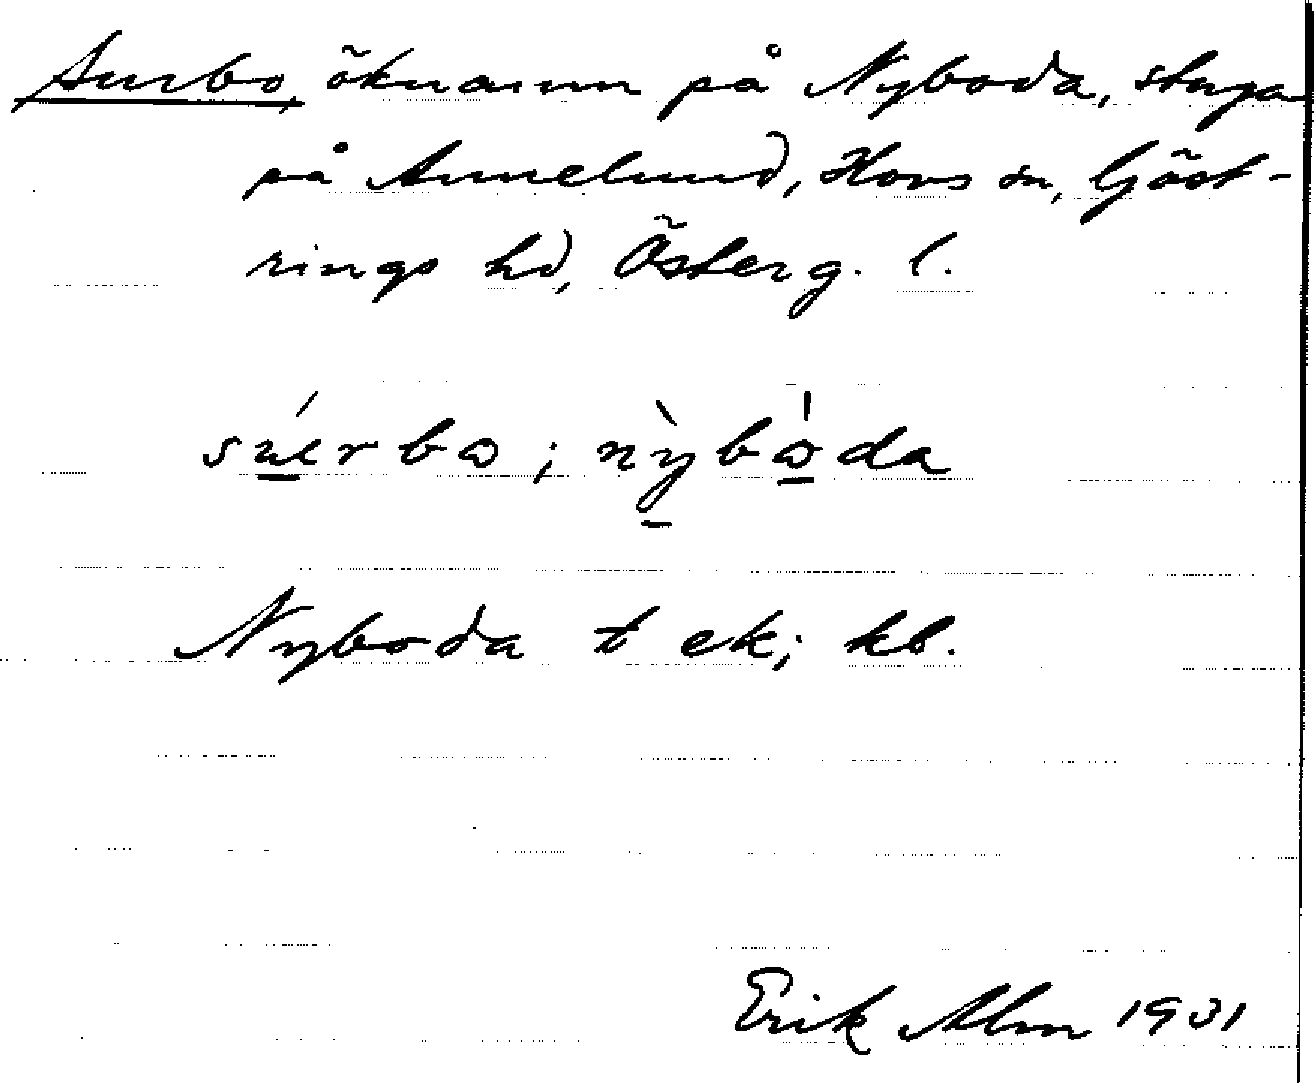 Surbo, öknamn på Nyboda, stuga
på Annelund, Hovs sn, Göst-
rings hd, Österg. l.
súerbo; nỳbo̍da
Nyboda t ek; kb.
Erik Alm 1931